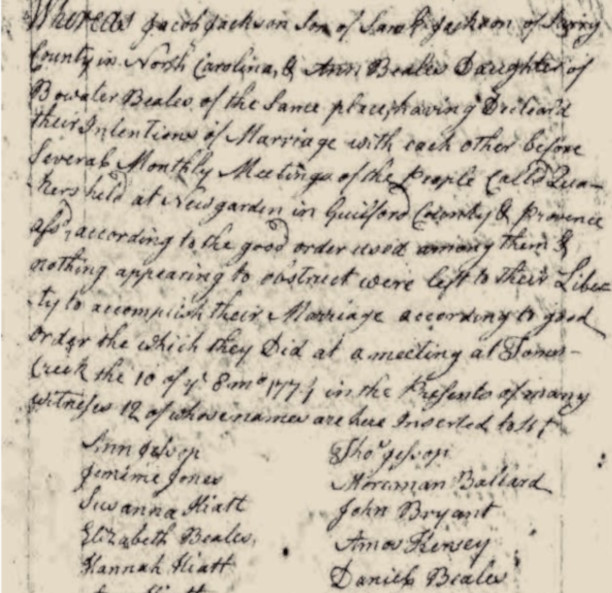 Whereas Jacob Jackson Son of Saml. Jackson of Surry
County in North Carolina, & Ann Beales Daughter of
Bowater Beales of the Same place, having Declard
their Intentions of Marriage with each other before
Several Monthly Meetings of the People Calld Qua-
kers held at Newgarden in Guilford County & Provence
afsd, according to the good order used among them &
nothing appearing to obstruct were left to their Liber-
ty to accomplish their Marriage according to good
order the which they Did at a meeting at Toms-
Creek the 10 of ye 8 mo 1774 in the Presents of many
witneses 12 of whose names are here Inserted to Wt
Ann Jessop Thos Jessop
Jemime Jones Moreman Ballard
Susanna Hiatt John Bryant
Elizabeth Beales Amos Kersey
Hannah Hiatt Daniel Beales
Hiatt